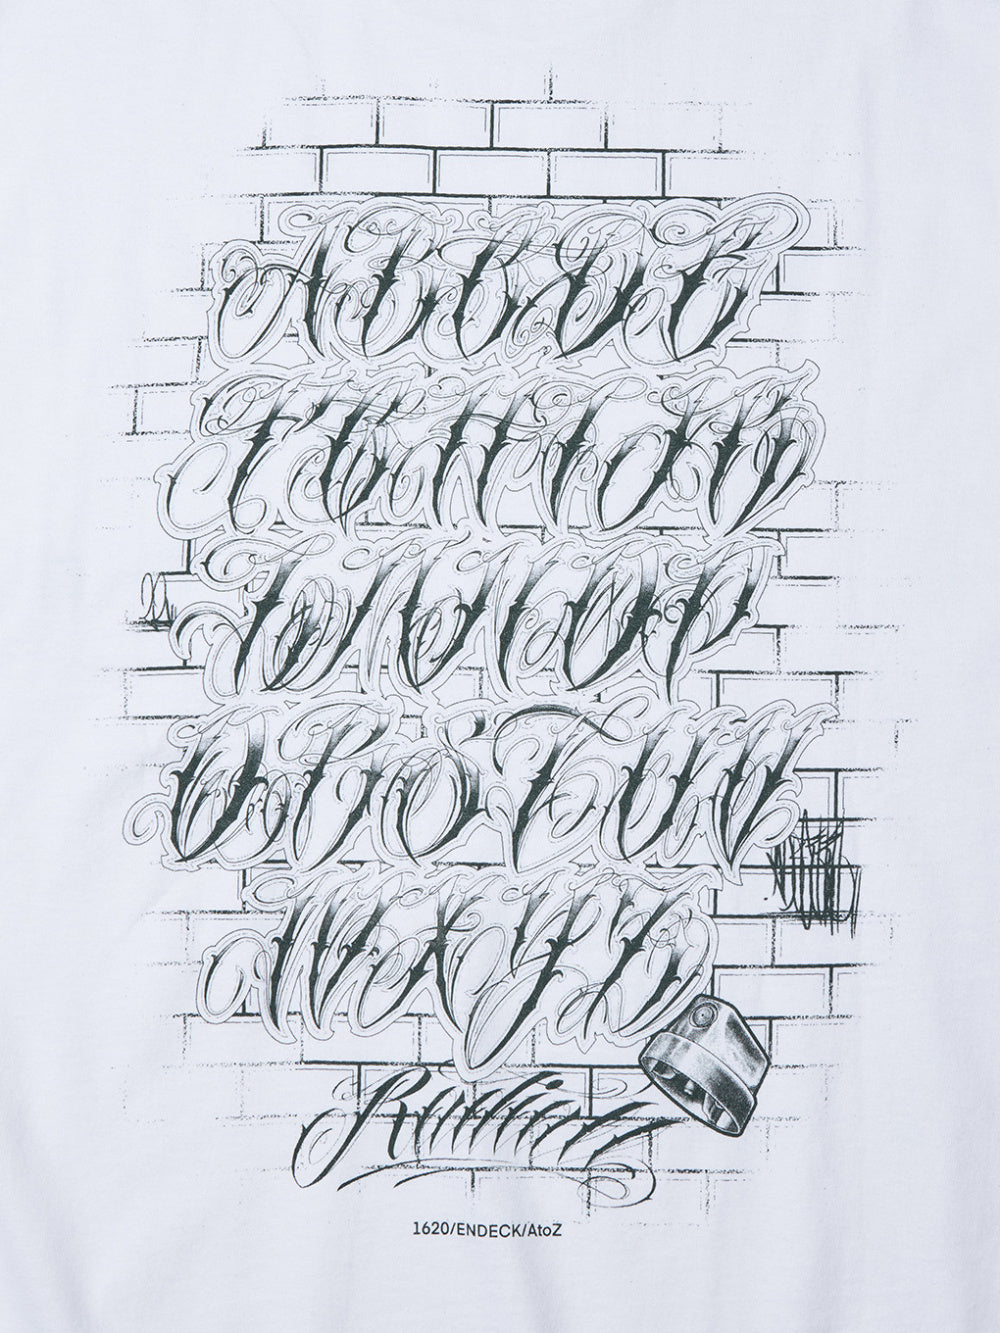 A B C D E
F G H I J K
L M N O P
Q R S T U V
W X Y Z
1620/ENDECK/AtoZ